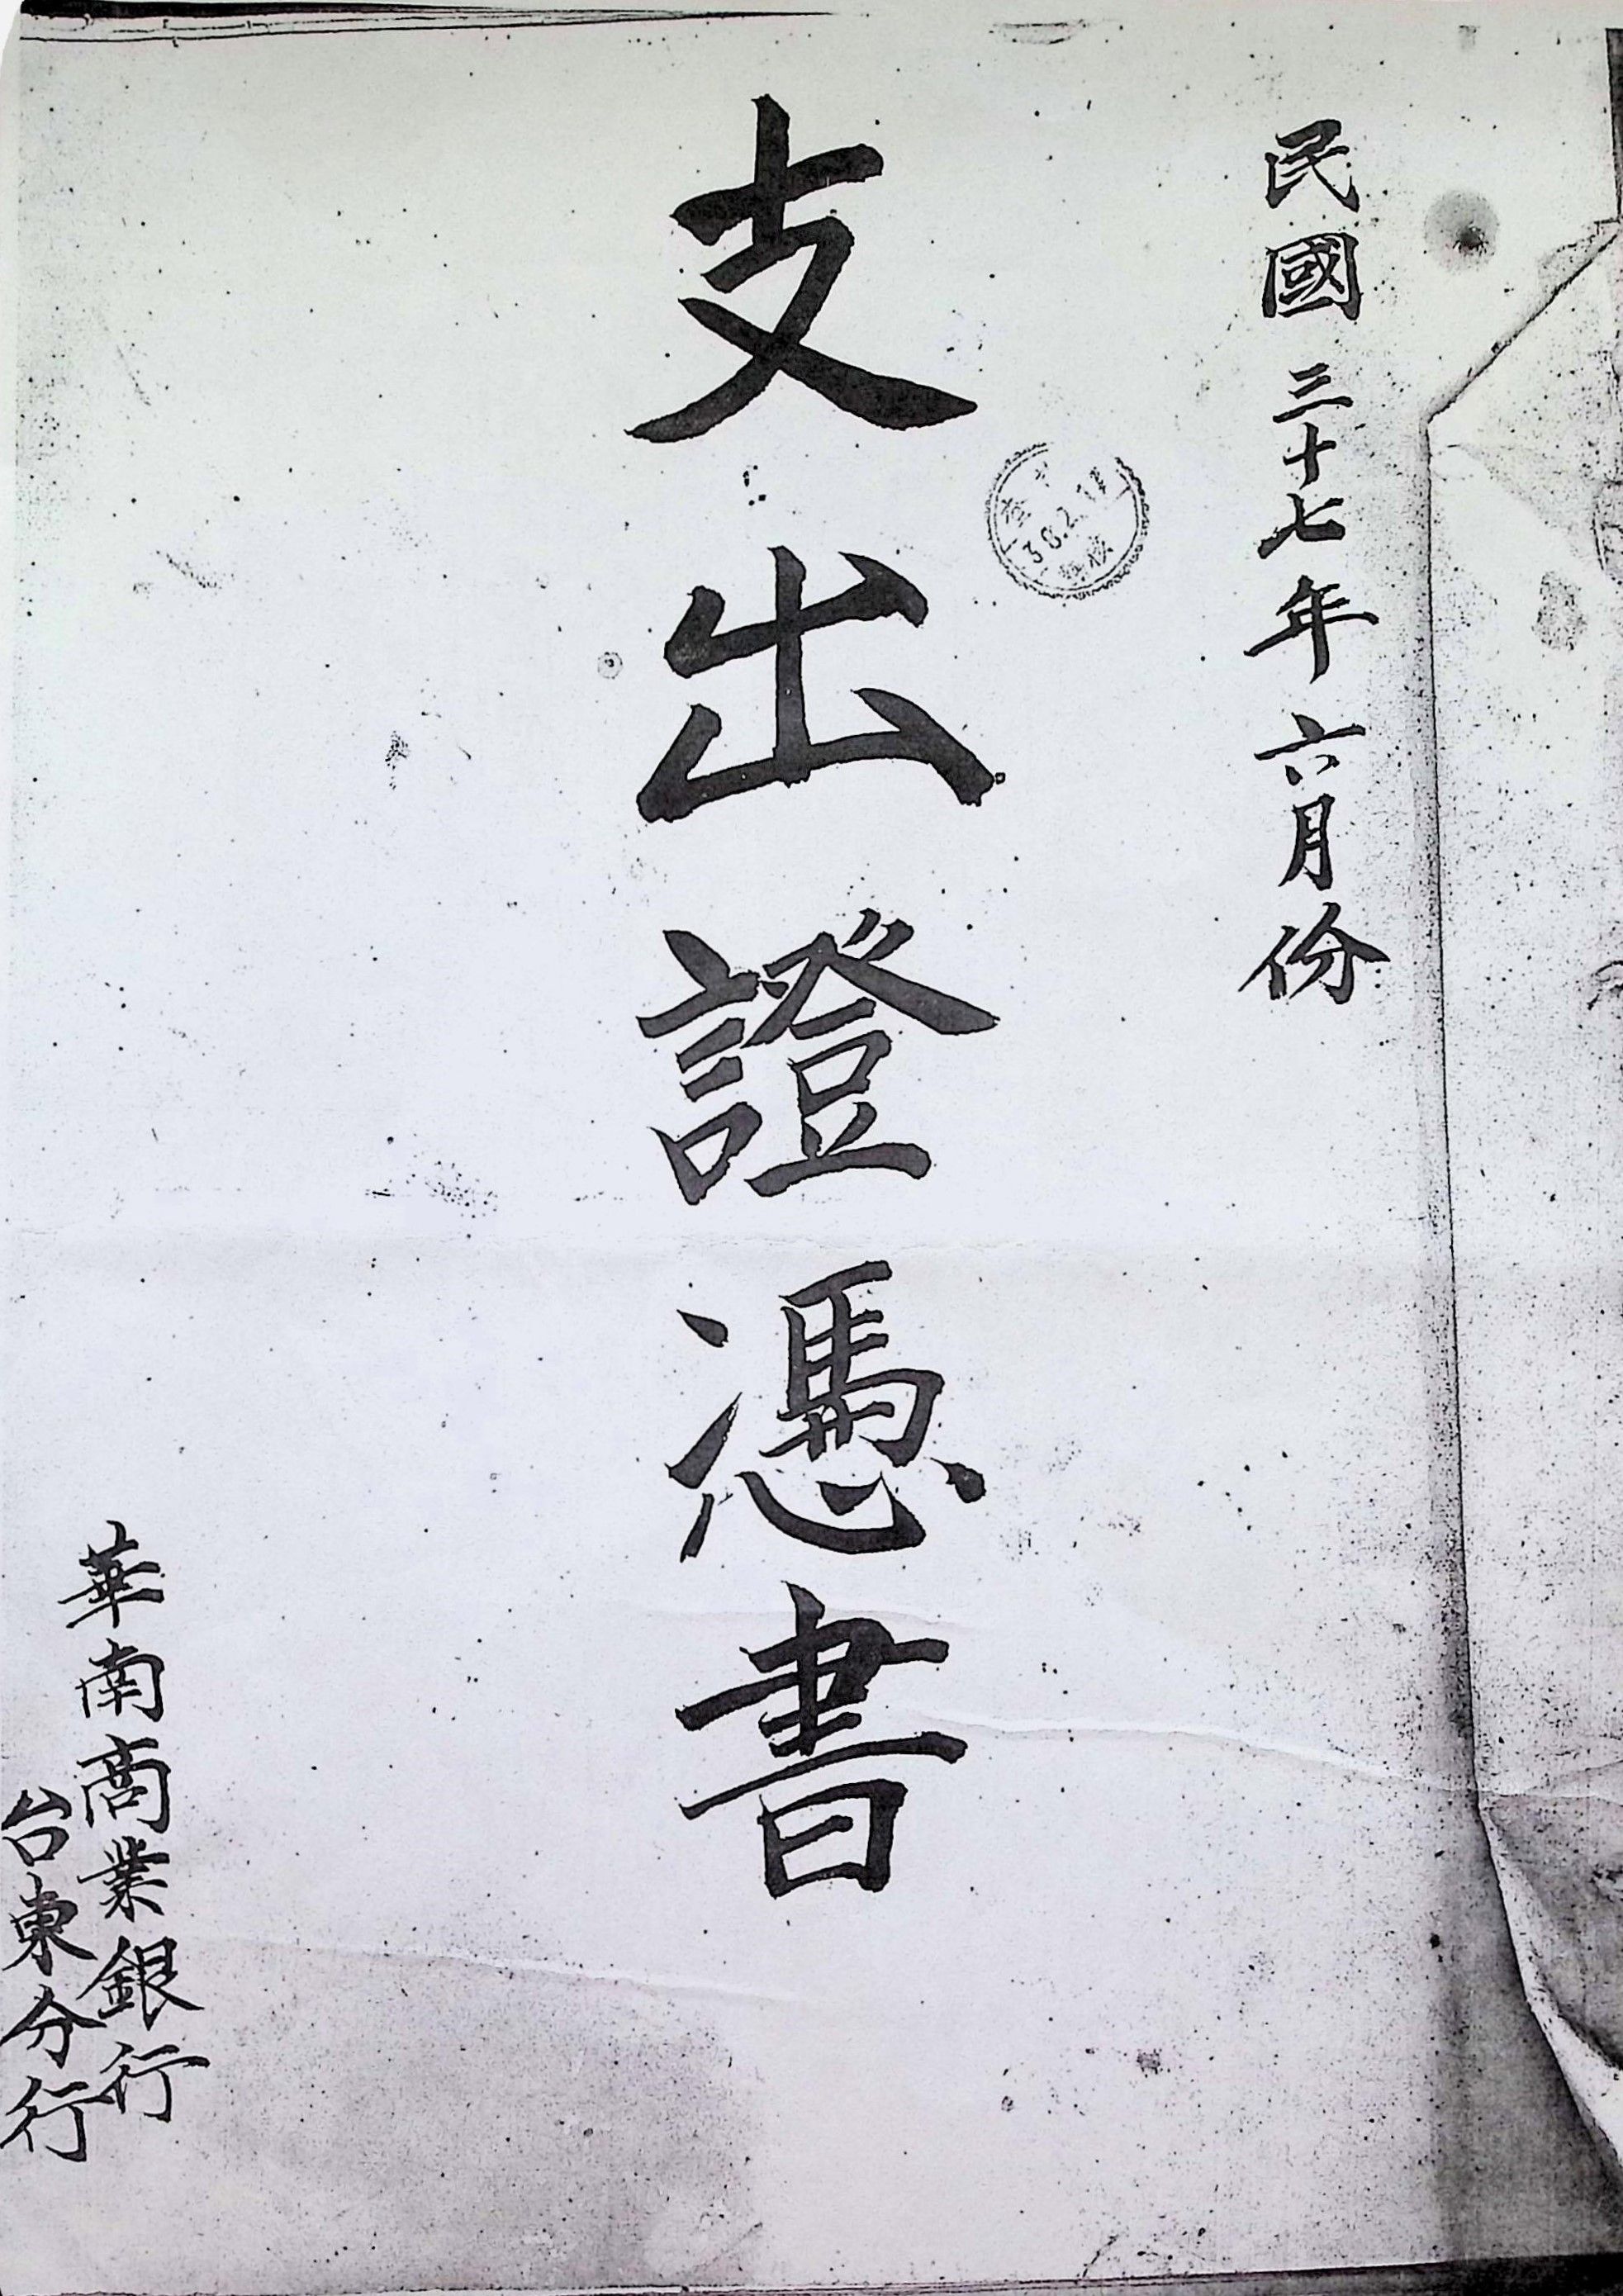 民國三十七年六月份
38.2.14
支出證憑書
華南商業銀行
台東分行